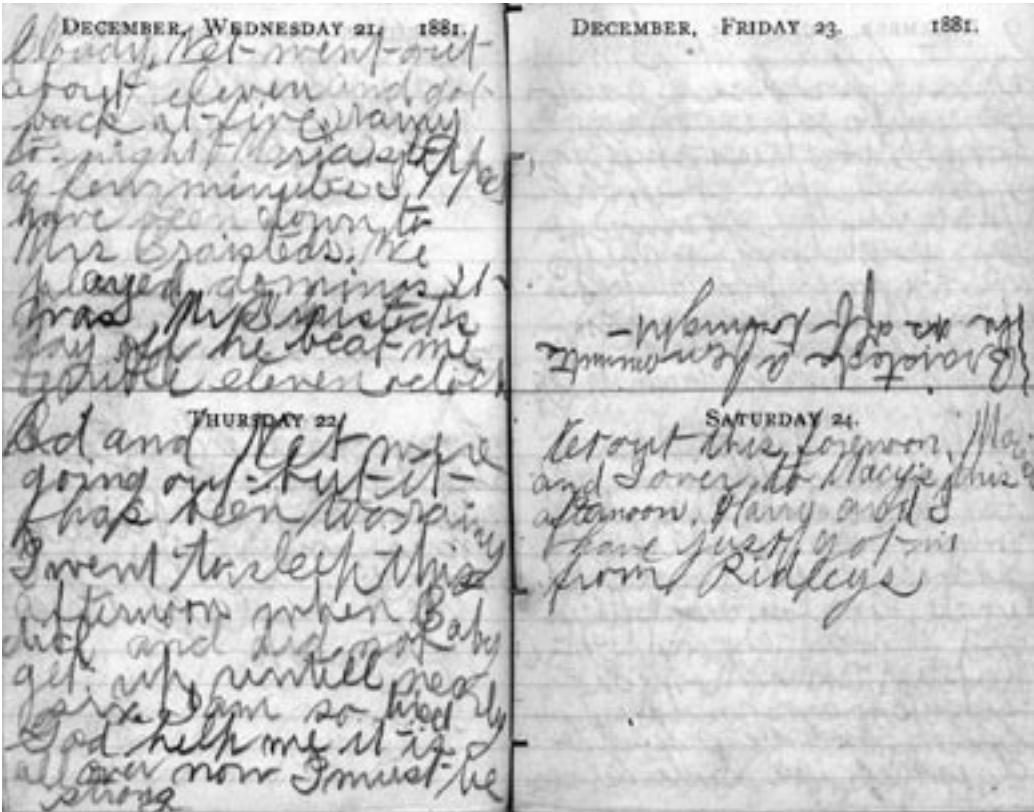 DECEMBER, WEDNESDAY 21. 1881.
Cloudy, Net went out
about eleven and got
back at five, rainy
to night Maria stopped
a few minutes, I
have been down to
Mrs Braisteds. We
played dominos it
was Mr Braisteds
day off he beat me
terrible eleven oclock
THURSDAY 22
Ed and Net were
going out but it
has been too rainy
I went to sleep this
afternoon when Baby
did and did not
get up untill nearly
six. I am so tired
God help me it is
all over now I must be
strong
DECEMBER, FRIDAY 23. 1881.
Braisteds a few minutes
he is off tonight
SATURDAY 24.
Net out this forenoon,
and I over to Macy's this
afternoon. Harry and I
have just got in
from Ridleys